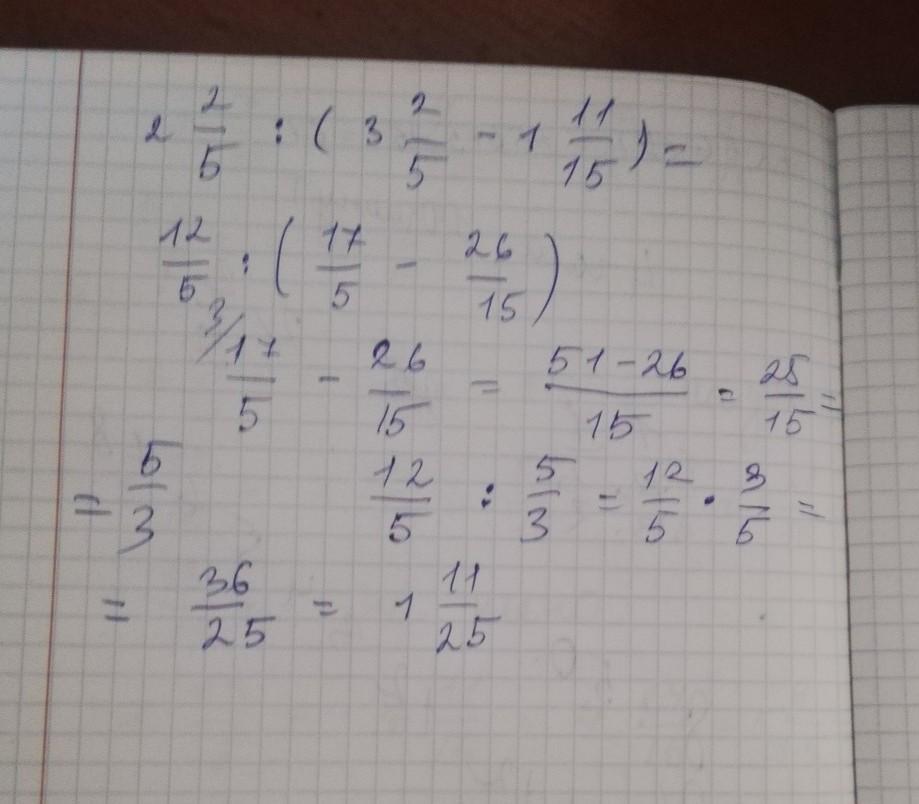 2 2/5 : ( 3 2/5 - 1 11/15 ) =
12/5 : ( 17/5 - 26/15 )
3/ 17/5 - 26/15 = 51-26/15 = 25/15 =
= 5/3 12/5 : 5/3 = 12/5 · 3/5 =
= 36/25 = 1 11/25